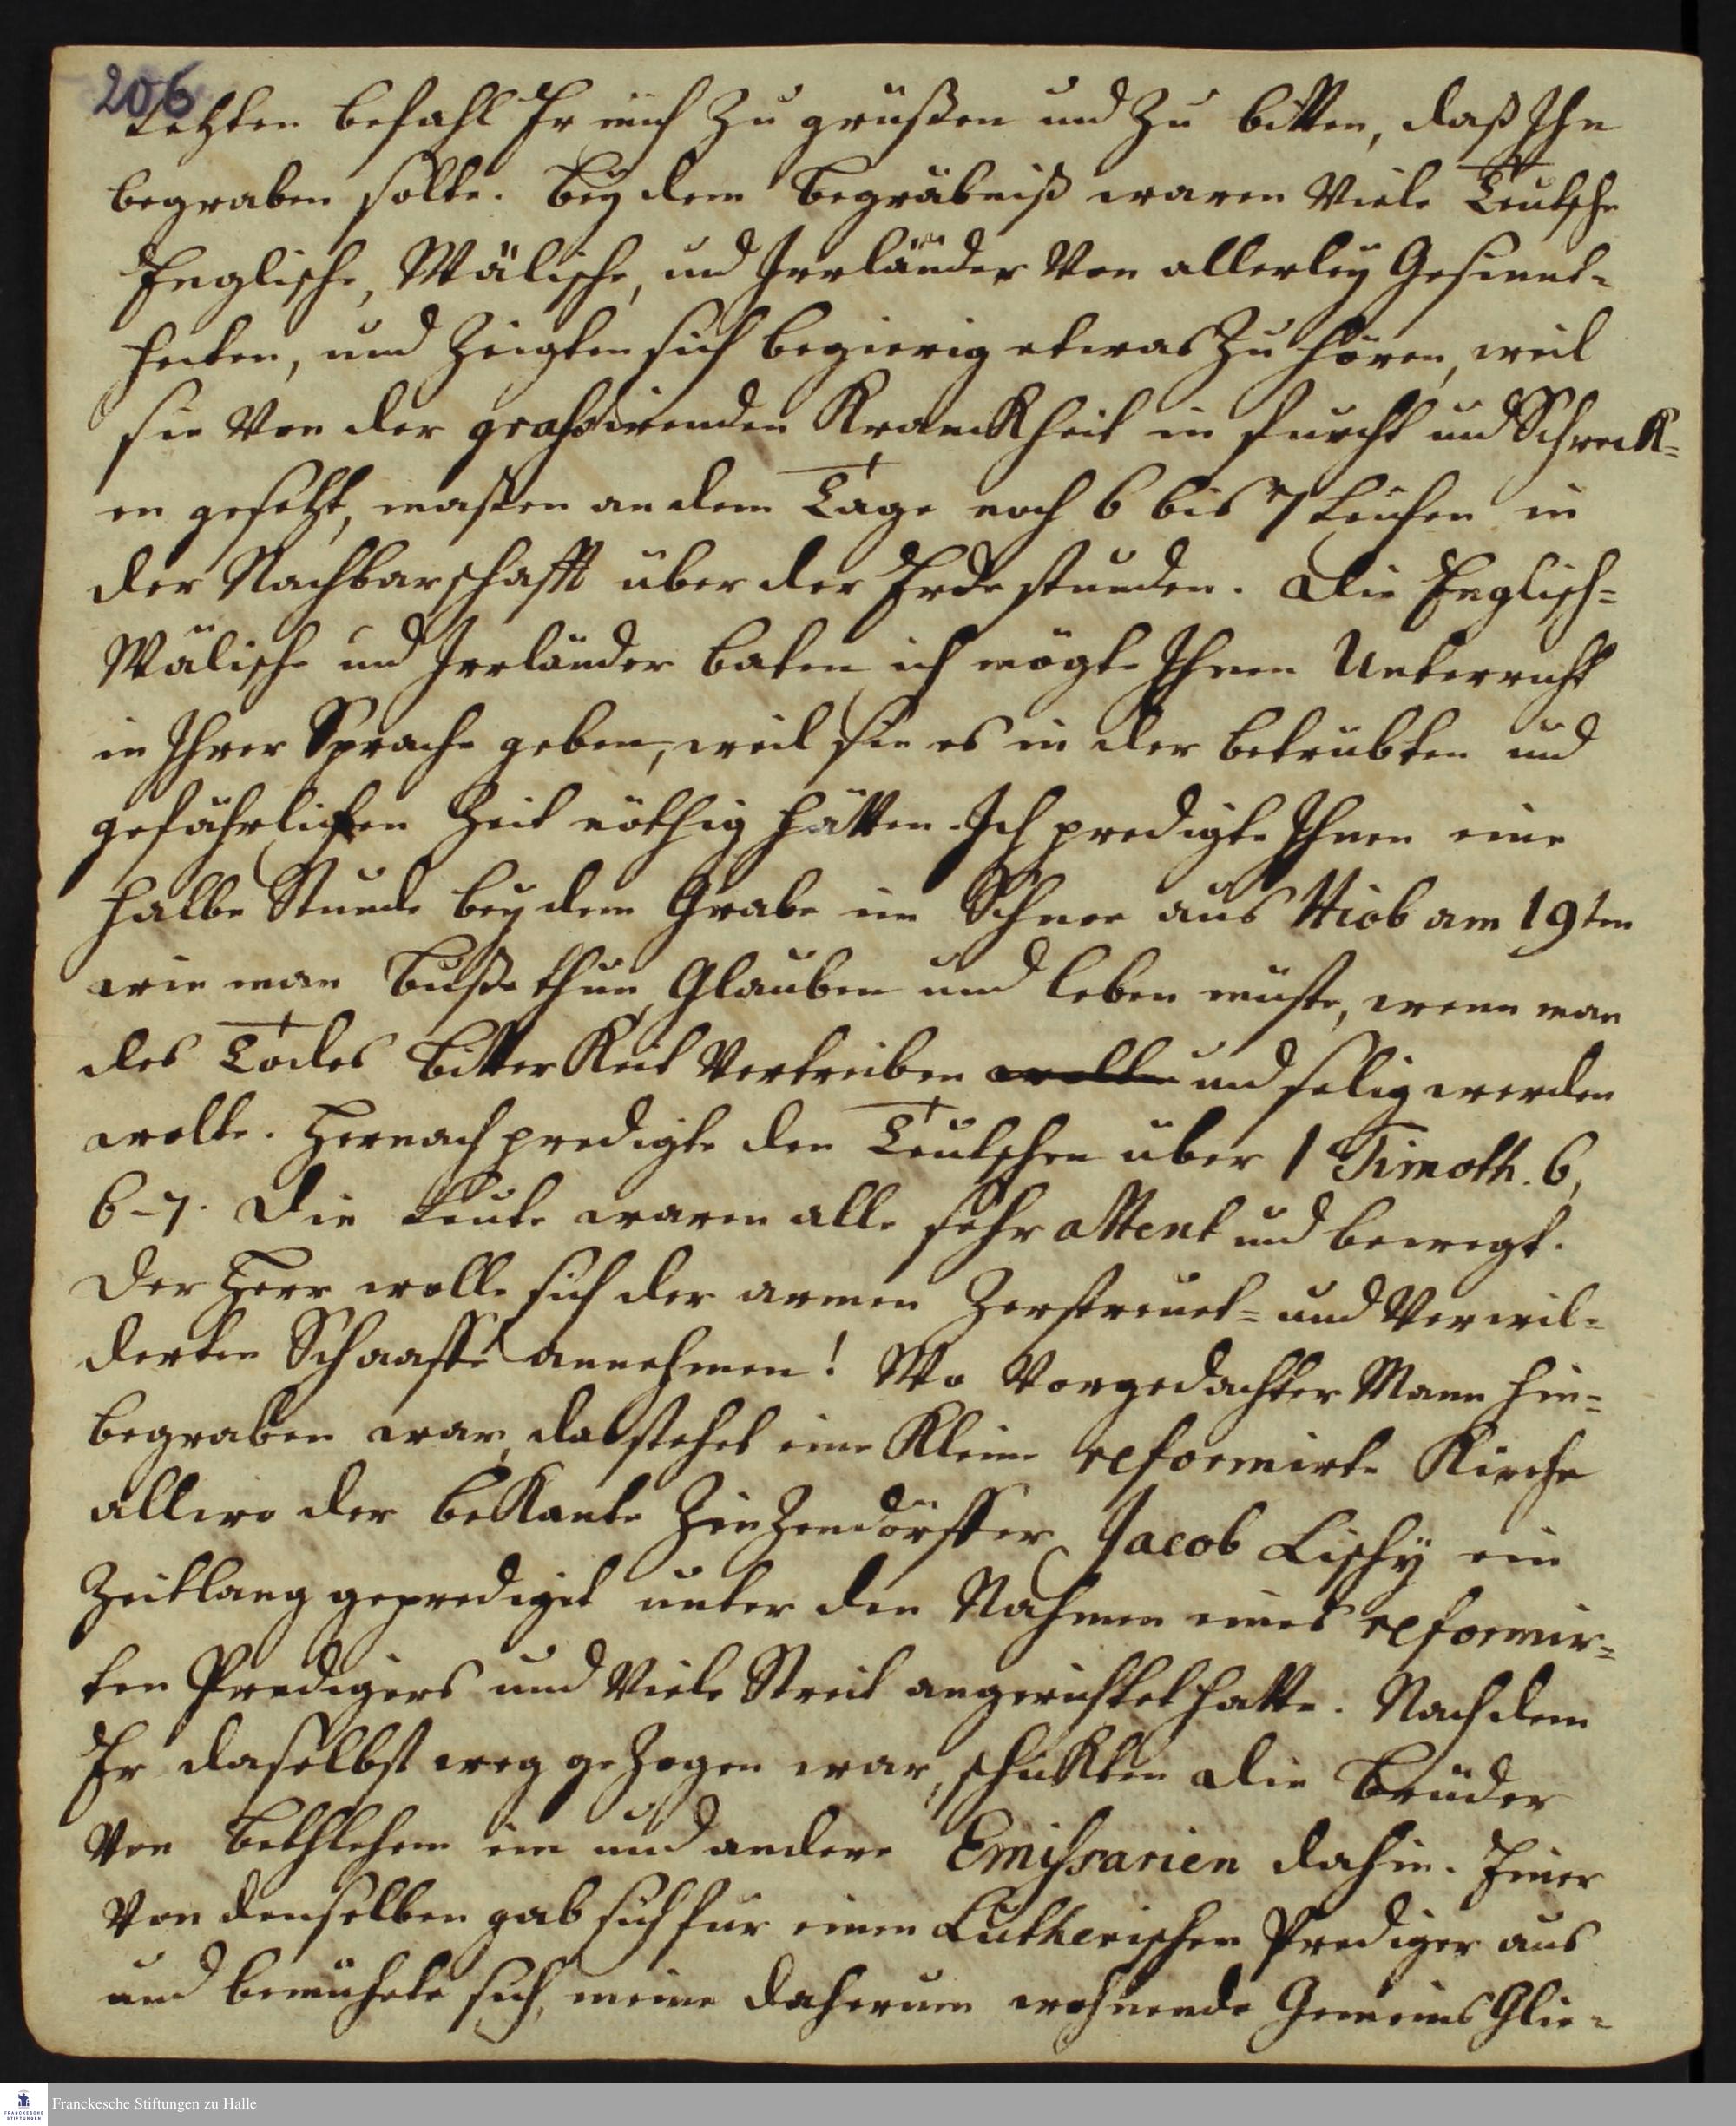 206
letzten befahl Er mich zu grüßen und zu bitten, daß Ihn
begraben solte. Bey dem Begräbniß waren viele Teutsche
Englische, Wälische, und Irrländer von allerley Gesinnt-
heiten, und zeigten sich begierig etwas zu hören, weil
sie von der grassirenden Kranckheit in Furcht und Schreck=
en gesetzt, massen an dem Tage noch 6 bis 7 Leichen in
der Nachbarschafft über der Erde stunden. Die Englisch=
Wälische und Irrländer baten ich mögte Ihnen Unterricht
in Ihrer Sprache geben, weil sie es in der betrübten und
gefährlichen Zeit nöthig hätten. Ich predigte Ihnen eine
halbe Stunde bey dem Grabe im Schnee aus Hiob am 19ten
wie man Buße thun, Glauben und leben müste, wenn man
des Todes Bitterkeit vertreiben wolte und selig werden
wolte. Hernach predigte den Teutschen über 1 Timoth. 6,
6-7. Die Leute waren alle sehr attent und bewegt.
Der Herr wolle sich der armen zerstreuet= und verwil-
derten Schaaffe annehmen! Wo vorgedachter Mann hin=
begraben war, da stehet eine kleine reformirte Kirche
allwo der bekante Zinzendörffer Jacob Lischÿ ein
Zeitlang geprediget unter den Nahmen eines reformir=
ten Predigers und viele Streit angerichtet hatte. Nachdem
Er daselbst weg gezogen war, schickten die Brüder
von Bethlehem ein und andere Emissarien dahin. Einer
von denselben gab sich für einen Lutherischen Prediger aus
und bemühete sich, meine daherum wohnende Gemeins Glie-
Franckesche Stiftungen zu Halle